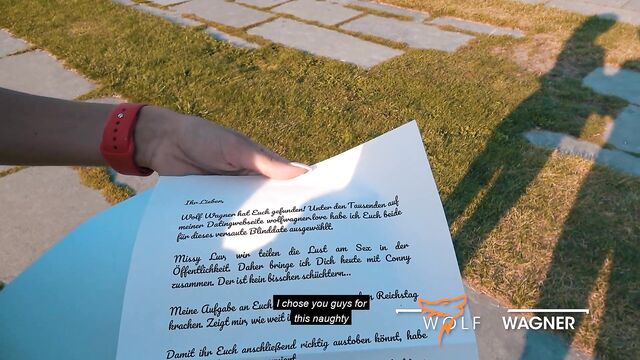 Ihr Lieben,
Wolf Wagner hat Euch gefunden! Unter den Tausenden auf
meiner Datingwebseite wolfwagner.love habe ich Euch beide
für dieses versaute Blinddate ausgewählt.
Missy Luv, wir teilen die Lust am Sex in der
Öffentlichkeit. Daher bringe ich Dich heute mit Conny
zusammen. Der ist kein bisschen schüchtern...
Meine Aufgabe an Euch Reichstag
krachen. Zeigt mir, wie weit
Damit ihr Euch anschließend richtig austoben könnt, habe
I chose you guys for
this naughty
WOLF WAGNER